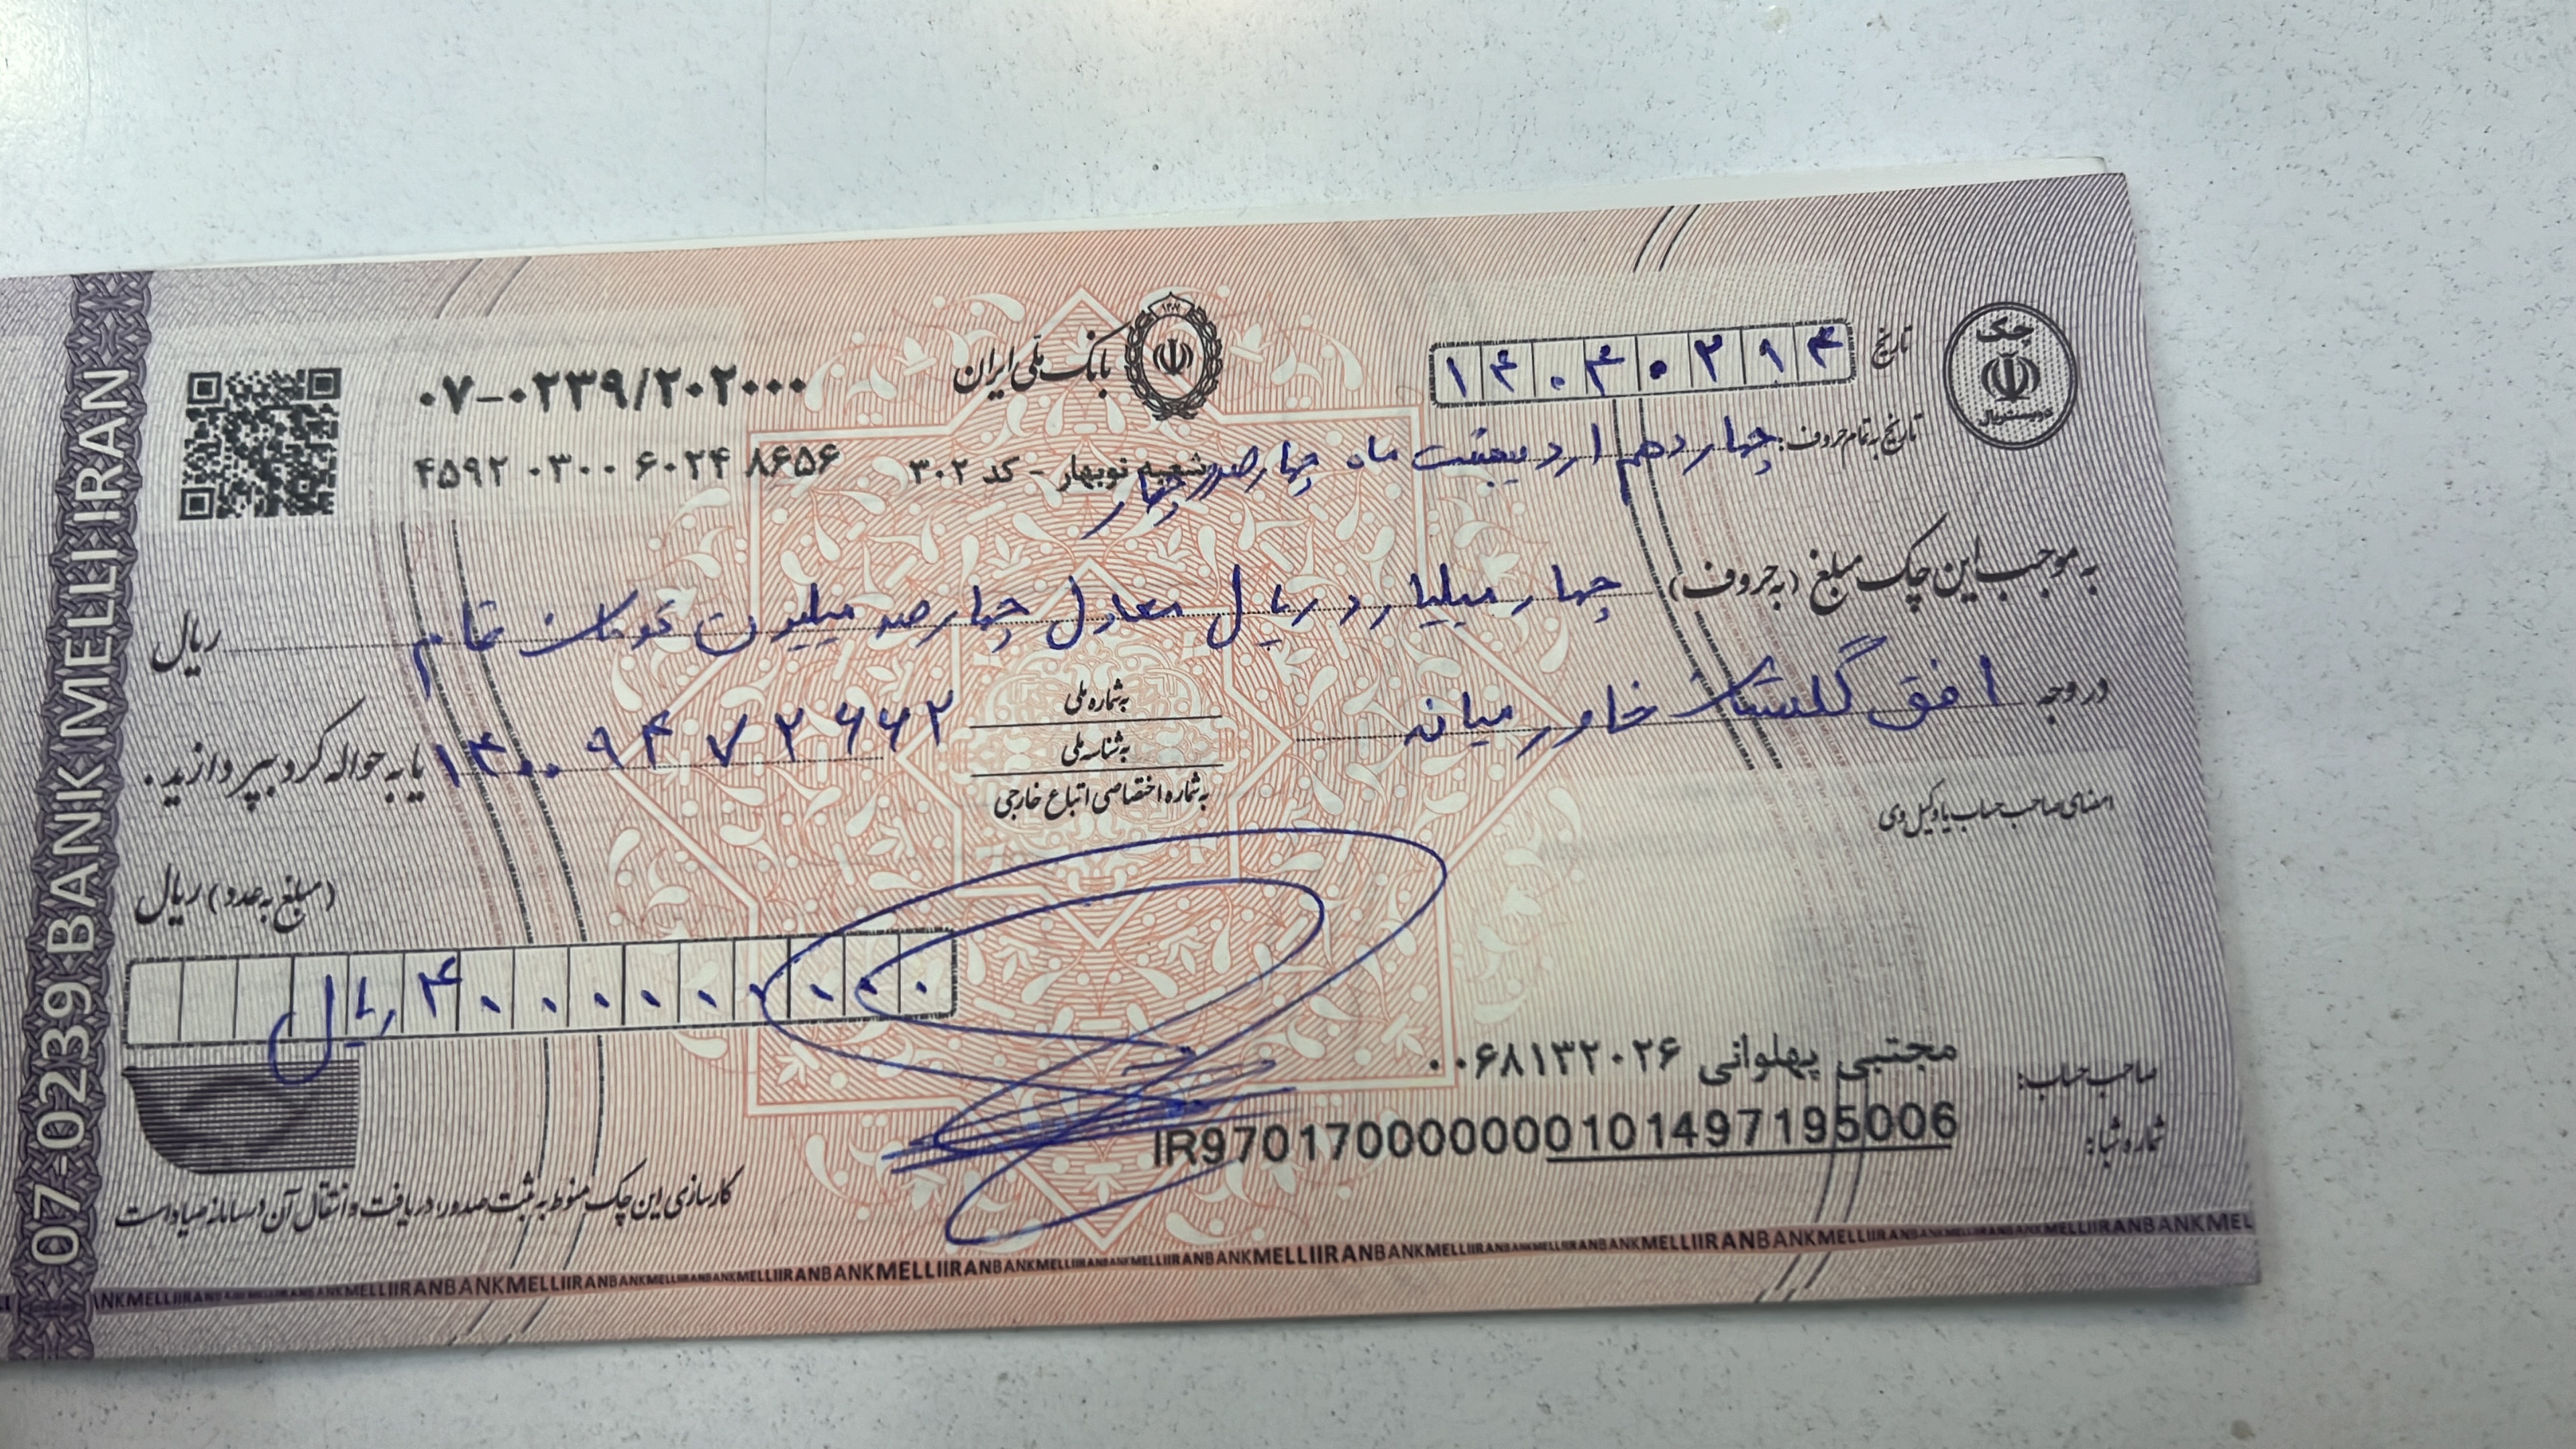 چک
دویست ریال
تاریخ ۱۴۰۴۰۲۱۴
بانک ملی ایران
۰۷-۰۲۳۹/۲۰۲۰۰۰
تاریخ به تمام حروف: چهاردهم اردیبهشت ماه چهارصد و چهار
شعبه نوبهار - کد ۳۰۲
۴۵۹۲ ۰۳۰۰ ۶۰۲۴ ۸۶۵۶
به موجب این چک مبلغ (به حروف) چهار میلیارد ریال معادل چهارصد میلیون تومان تمام ریال
در وجه افق گلستان خاور میانه
به شماره ملی
به شناسه ملی
به شماره اختصاصی اتباع خارجی
۱۴۰۰۹۴۷۲۶۶۲ یا به حواله کرد بپردازید.
امضای صاحب حساب یا وکیل وی
(مبلغ به عدد) ریال
۴۰۰۰۰۰۰۰۰۰ ریال
صاحب حساب: مجتبی پهلوانی ۰۰۶۸۱۳۲۰۲۶
شماره شبا: IR970170000000101497195006
کارسازی این چک منوط به ثبت صدور، دریافت و انتقال آن در سامانه صیاد است
07-0239 BANK MELLI IRAN
BANKMELLIIRANBANKMELLIIRANBANKMELLIIRANBANKMELLIIRAN